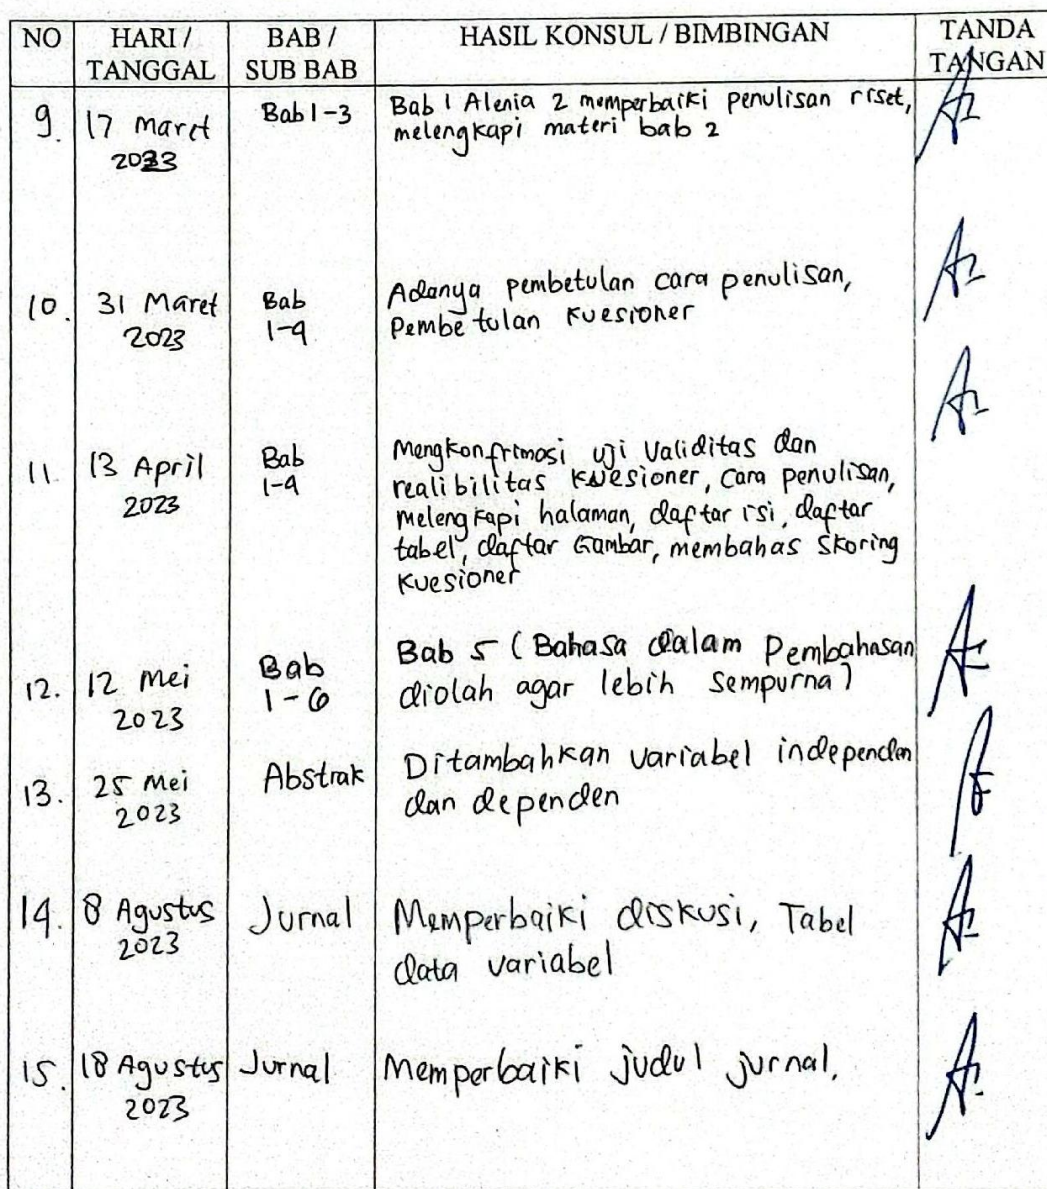 NO HARI / TANGGAL BAB / SUB BAB HASIL KONSUL / BIMBINGAN TANDA TANGAN
9. 17 Maret 2023 Bab 1-3 Bab 1 Alenia 2 memperbaiki penulisan riset,
melengkapi materi bab 2
10. 31 Maret 2023 Bab 1-4 Adanya pembetulan cara penulisan,
Pembetulan kuesioner
11. 13 April 2023 Bab 1-4 Mengkonfrmasi uji Validitas dan
realibilitas kuesioner, Cara penulisan,
Melengkapi halaman, daftar isi, daftar
tabel, daftar Gambar, membahas Skoring
Kuesioner
12. 12 Mei 2023 Bab 1-6 Bab 5 (Bahasa dalam Pembahasan
diolah agar lebih Sempurna)
13. 25 Mei 2023 Abstrak Ditambahkan variabel independen
dan dependen
14. 8 Agustus 2023 Jurnal Memperbaiki diskusi, Tabel
data variabel
15. 18 Agustus 2023 Jurnal Memperbaiki judul jurnal.